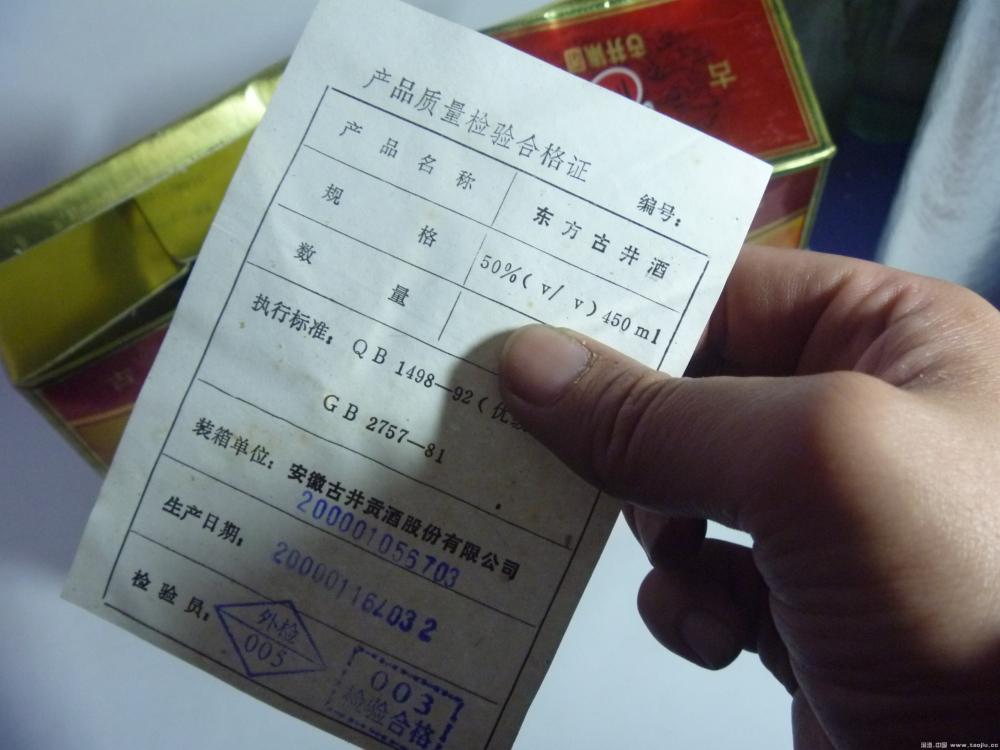 产品质量检验合格证
编号:
产品名称 东方古井酒
规格 50%(v/v)450ml
数量
执行标准: QB 1498—92(优
GB 2757—81
装箱单位: 安徽古井贡酒股份有限公司
200001056703
生产日期:
检验员:
外检
005
003
检验合格
古井集团
古
古
www.taojiu.cc